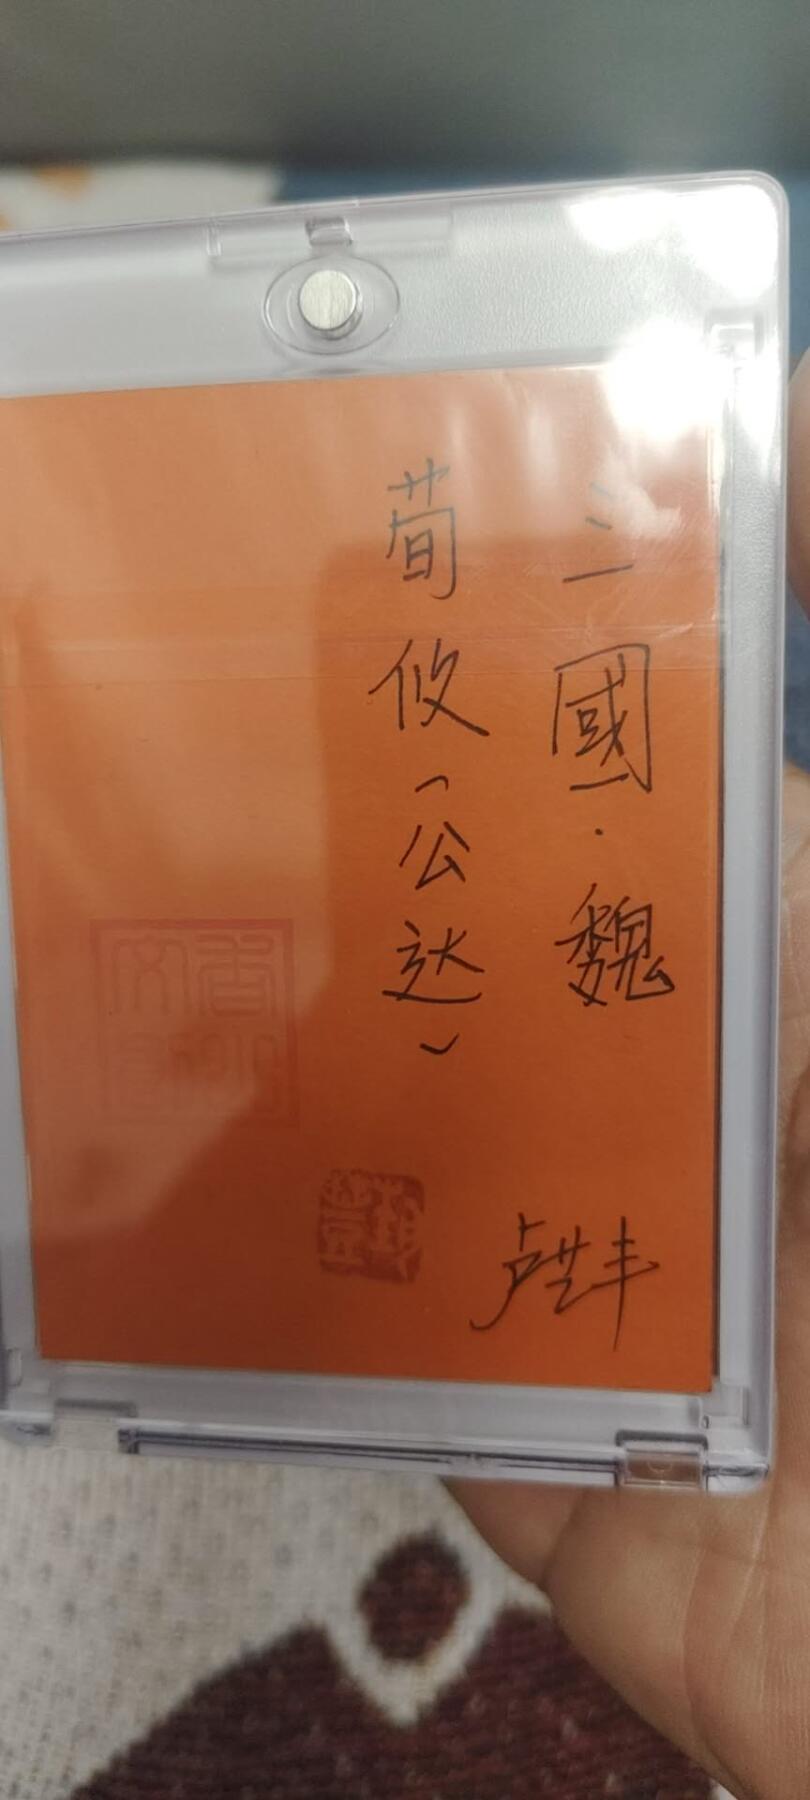 三國·魏
荀攸(公达)
卢世丰